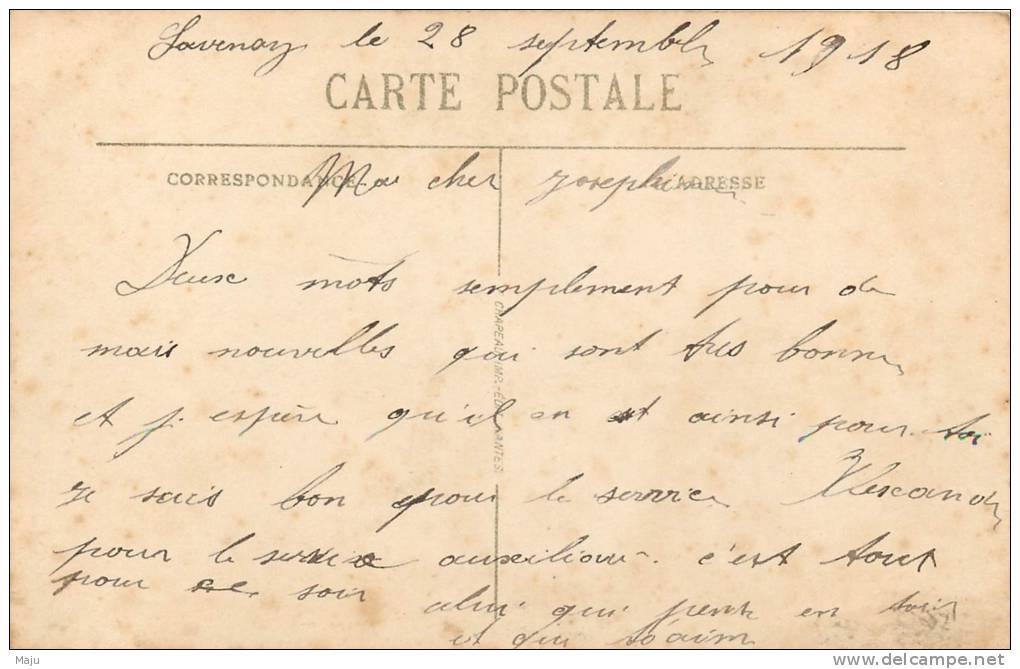 Savenay le 28 septembre 1918
CARTE POSTALE
CORRESPONDANCE
ADRESSE
Ma cher Josephine
Deux mots semplement pour de
mais nouvelles qui sont tres bonne
et j. espère qu'il en est ainsi pour toi
je suis bon pour le service
pour le service auxiliaire c'est tout
pour ce soir celui qui pense en toi
et qui t'aime
CHAPEAU IMP.-ÉDIT. NANTES
Maju
www.delcampe.net